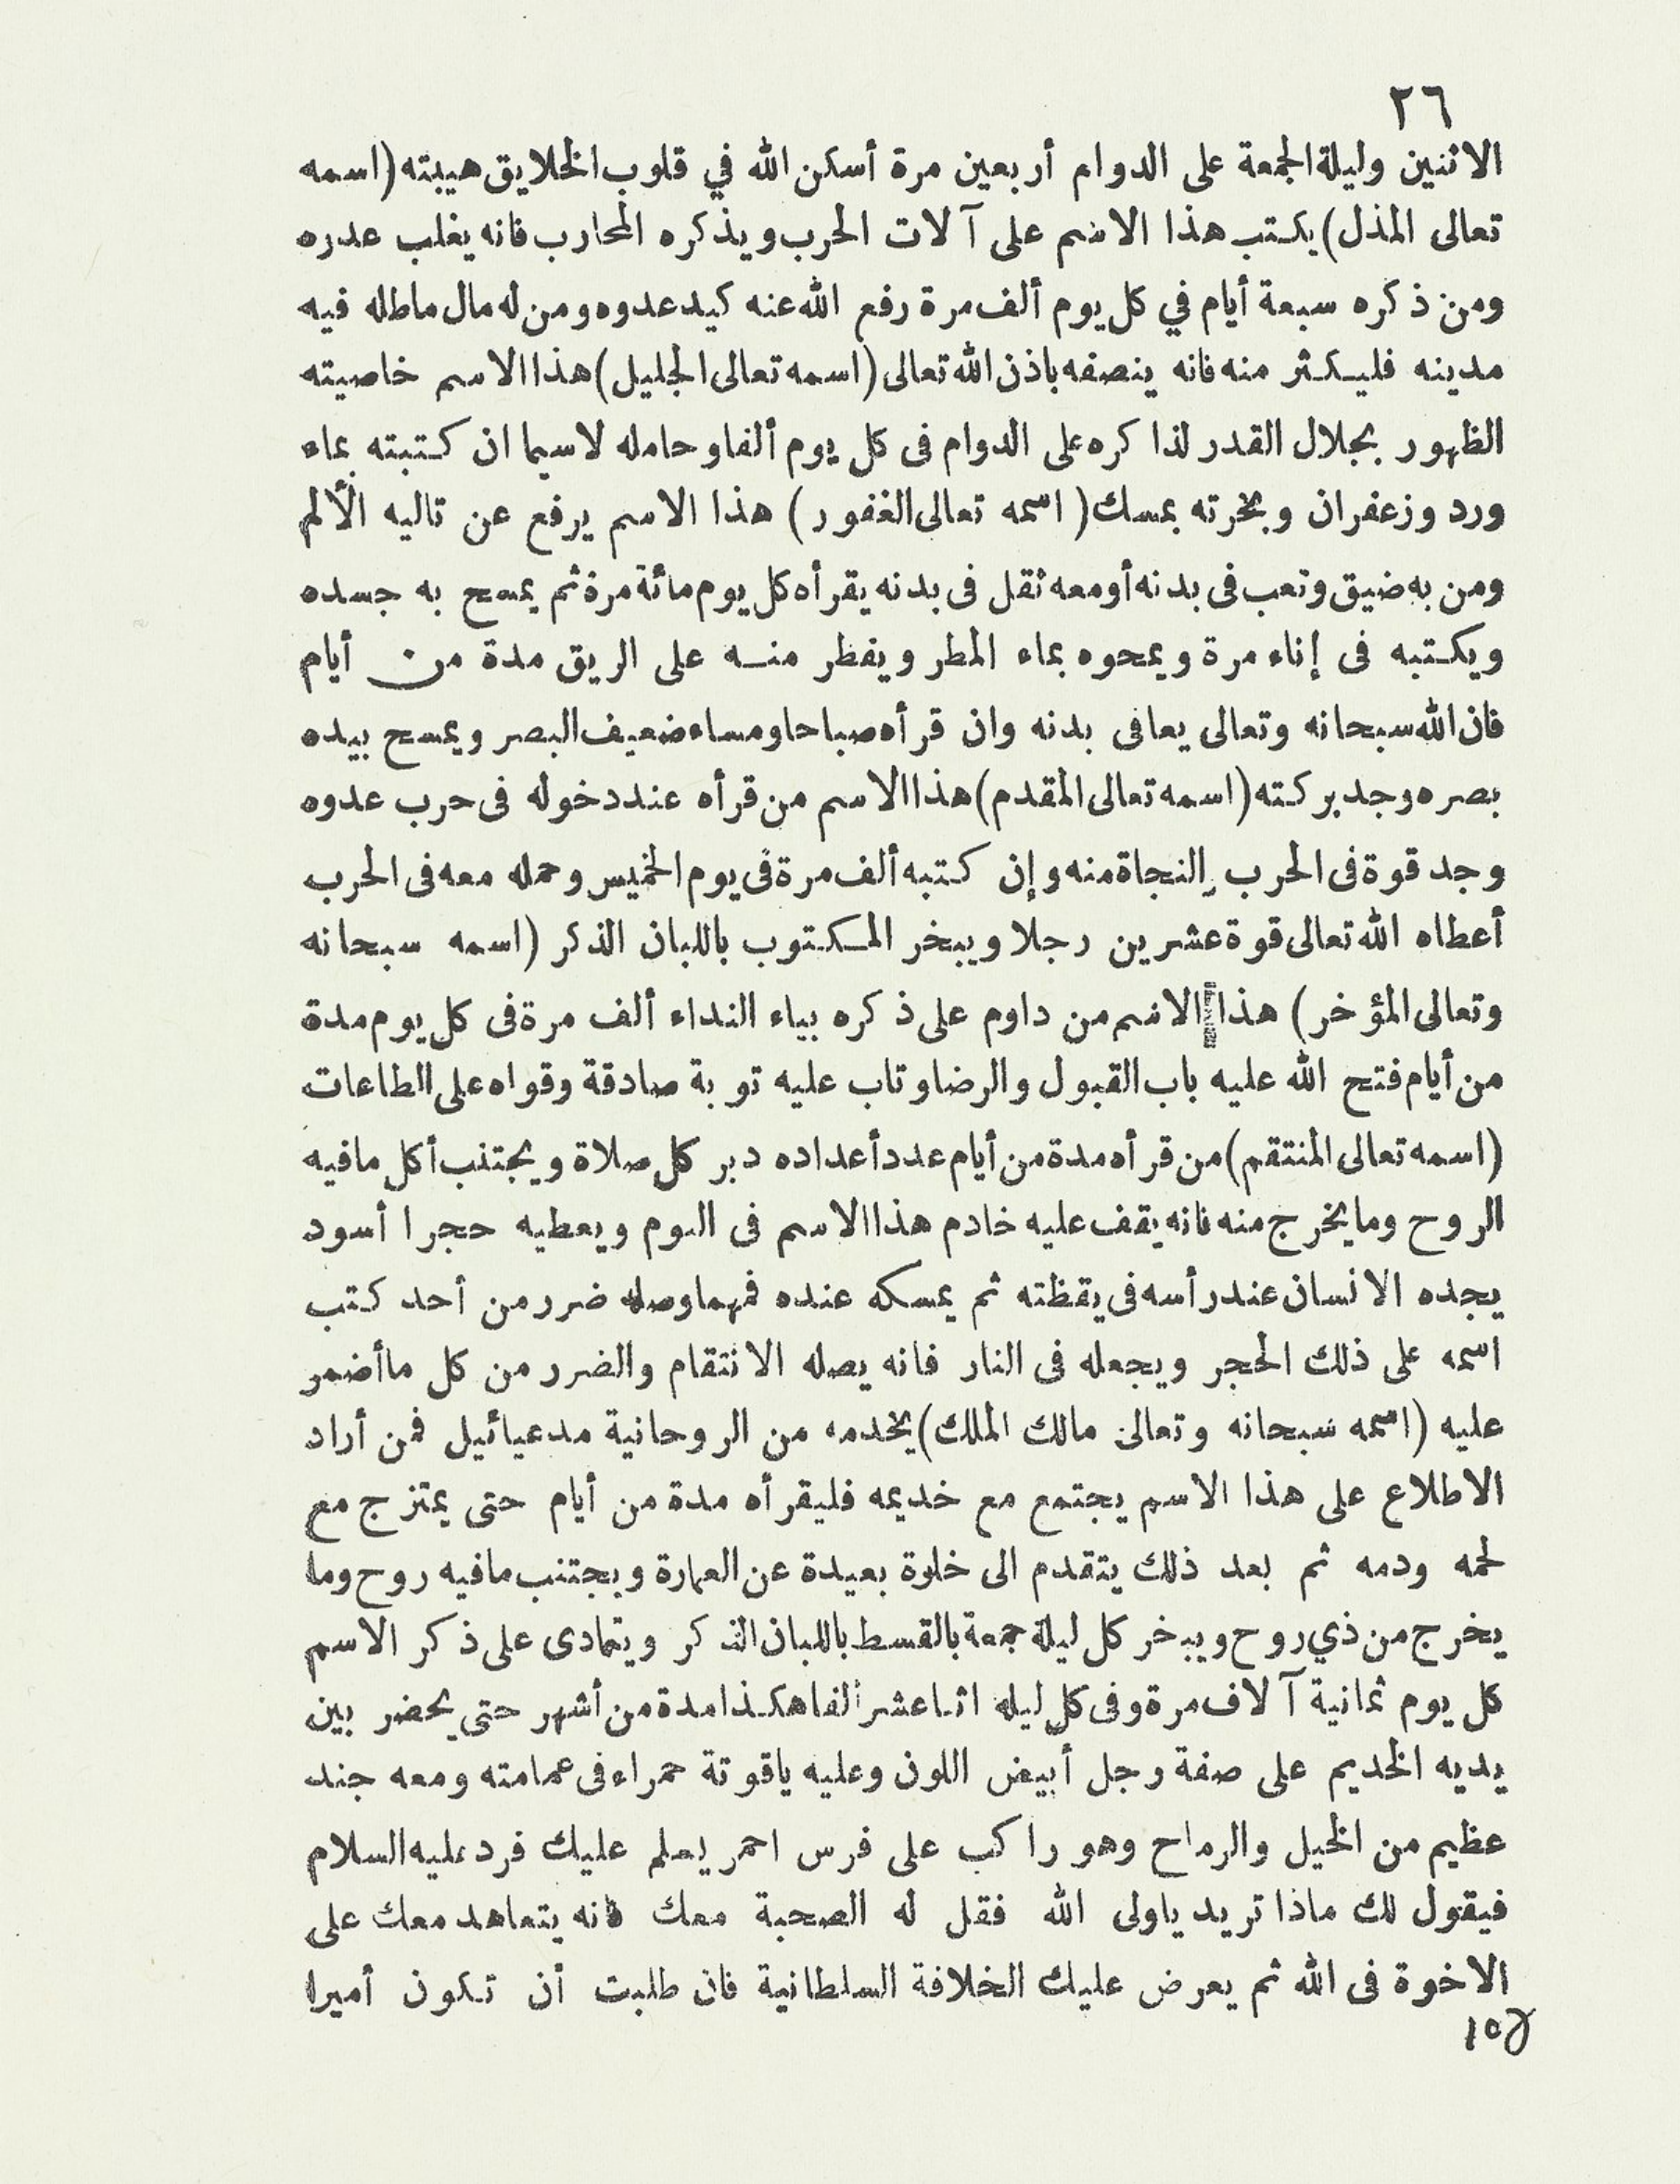 ٢٦
الاثنين وليلة الجمعة على الدوام أربعين مرة أسكن الله في قلوب الخلايق هيبته (اسمه
تعالى المذل) يكتب هذا الاسم على آلات الحرب ويذكره المحارب فانه يغلب عدره
ومن ذكره سبعة أيام في كل يوم ألف مرة رفع الله عنه كيد عدوه ومن له مال ماطله فيه
مدينه فليكثر منه فانه ينصفه باذن الله تعالى (اسمه تعالى الجليل) هذا الاسم خاصيته
الظهور بجلال القدر لذاكره على الدوام فى كل يوم ألفا وحامله لاسيما ان كتبته بماء
ورد وزعفران وبخرته بمسك (اسمه تعالى الغفور) هذا الاسم يرفع عن تاليه الألم
ومن به ضيق وتعب فى بدنه أو معه ثقل فى بدنه يقرأه كل يوم مائة مرة ثم يمسح به جسده
ويكتبه فى إناء مرة ويمحوه بماء المطر ويفطر منه على الريق مدة من أيام
فان الله سبحانه وتعالى يعافى بدنه وان قرأه صباحا ومساء ضعيف البصر ويمسح بيده
بصره وجد بركته (اسمه تعالى المقدم) هذا الاسم من قرأه عند دخوله فى حرب عدوه
وجد قوة فى الحرب والنجاة منه وإن كتبه ألف مرة فى يوم الخميس وحمله معه فى الحرب
أعطاه الله تعالى قوة عشرين رجلا ويبخر المكتوب باللبان الذكر (اسمه سبحانه
وتعالى المؤخر) هذا الاسم من داوم على ذكره بياء النداء ألف مرة فى كل يوم مدة
من أيام فتح الله عليه باب القبول والرضا وتاب عليه توبة صادقة وقواه على الطاعات
(اسمه تعالى المنتقم) من قرأه مدة من أيام عدد أعداده دبر كل صلاة ويجتنب أكل ما فيه
الروح وما يخرج منه فانه يقف عليه خادم هذا الاسم فى اليوم ويعطيه حجرا أسود
يجده الانسان عند رأسه فى يقظته ثم يمسكه عنده فمهما وصله ضرر من أحد كتب
اسمه على ذلك الحجر ويجعله فى النار فانه يصله الانتقام والضرر من كل ما أضمر
عليه (اسمه سبحانه وتعالى مالك الملك) يخدمه من الروحانية مدعيائيل فمن أراد
الاطلاع على هذا الاسم يجتمع مع خديمه فليقرأه مدة من أيام حتى يمتزج مع
لحمه ودمه ثم بعد ذلك يتقدم الى خلوة بعيدة عن العمارة ويجتنب ما فيه روح وما
يخرج من ذي روح ويبخر كل ليلة جمعة بالقسط باللبان الذكر ويتمادى على ذكر الاسم
كل يوم ثمانية آلاف مرة وفى كل ليله اثنا عشر ألفا هكذا مدة من أشهر حتى يحضر بين
يديه الخديم على صفة رجل أبيض اللون وعليه ياقوتة حمراء فى عمامته ومعه جند
عظيم من الخيل والرماح وهو راكب على فرس احمر يسلم عليك فرد عليه السلام
فيقول لك ماذا تريد ياولى الله فقل له الصحبة معك فانه يتعاهد معك على
الاخوة فى الله ثم يعرض عليك الخلافة السلطانية فان طلبت أن تكون أميرا